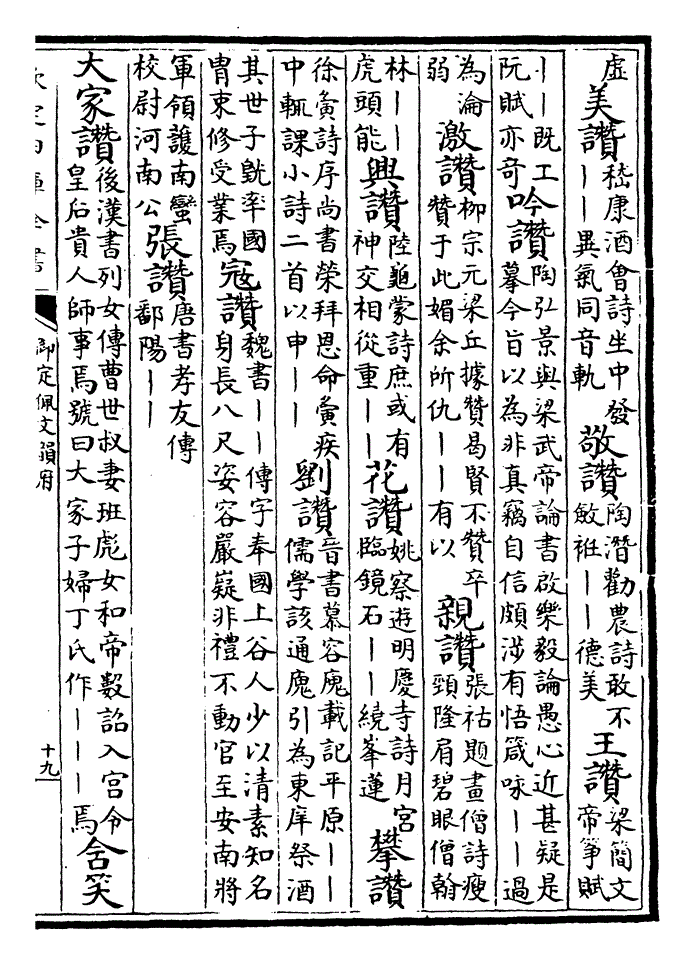 虛美讚嵇康酒會詩坐中發——異氣同音軌敬讚陶潛勸農詩敢不斂衽——德美王讚梁簡文帝箏賦
——既工阮賦亦奇吟讚陶弘景與梁武帝論書啟樂毅論愚心近甚疑是摹今旨以為非真竊自信頗涉有悟箴咏——過
為淪弱激讚柳宗元梁丘據贊曷賢不贊卒贊于此媚余所仇——有以親讚張祜題畫僧詩瘦頸隆肩碧眼僧翰
林——虎頭能興讚陸龜蒙詩庶或有神交相從重——花讚姚察遊明慶寺詩月宮臨鏡石——繞峯蓮攀讚
徐夤詩序尚書榮拜恩命夤疾中輒課小詩二首以申——劉讚晉書慕容廆載記平原——儒學該通廆引為東庠祭酒
其世子皝率國胄束修受業焉寇讚魏書——傳字奉國上谷人少以清素知名身長八尺姿容嚴嶷非禮不動官至安南將
軍領護南蠻校尉河南公張讚唐書孝友傳鄱陽——
大家讚後漢書列女傳曹世叔妻班彪女和帝數詔入宮令皇后貴人師事焉號曰大家子婦丁氏作———焉含笑
欽定四庫全書 御定佩文韻府 十九